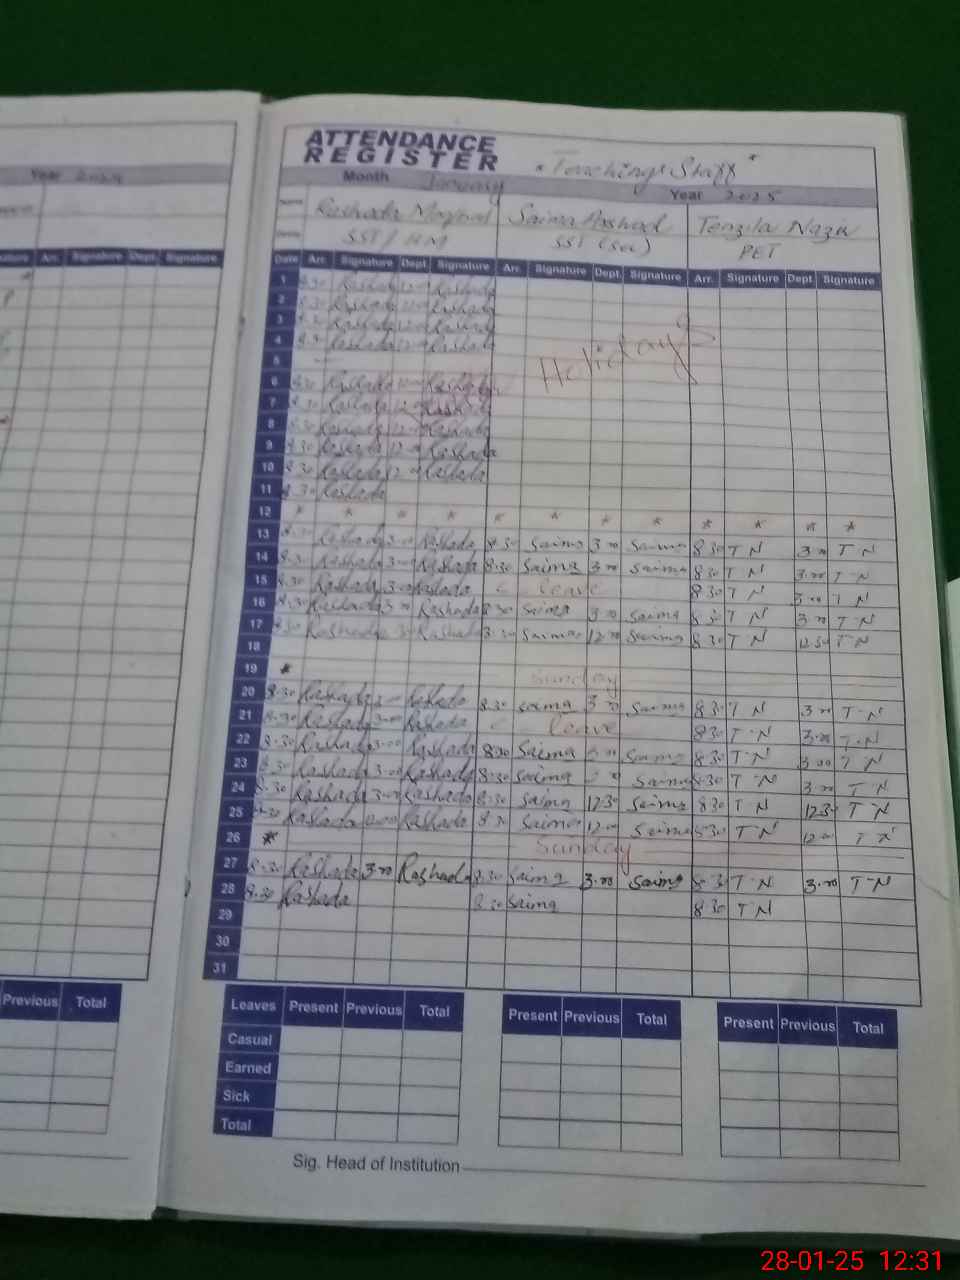 ATTENDANCE
REGISTER
* Teaching Staff *
Year 2024
Month January Year 2025
Name Rashada Mughal Saima Arshad Tenzila Nazir
SST / HM SST (Sci) PET
Signature Arr. Signature Dept. Signature
Date Arr. Signature Dept. Signature Arr. Signature Dept. Signature Arr. Signature Dept Signature
1 8.30 Rashada 12.00 Rashada
2 8.30 Rashada 12.00 Rashada
3 Rashada 12.00 Rashada
4 Rashada 12.00 Rashada
Holidays
5
6 8.30 Rashada 12.00 Rashada
7 8.30 Rashada 12.00 Rashada
8 8.30 Rashada 12.00 Rashada
9 8.30 Rashada 12.00 Rashada
10 8.30 Rashada 12.00 Rashada
11 8.30 Rashada
12 * * * * * * * * * * * *
13 8.30 Rashada 3.00 Rashada 8.30 Saima 3.00 Saima 8.30 T N 3.00 T N
14 8.30 Rashada 3.00 Rashada 8.30 Saima 3.00 Saima 8.30 T N 3.00 T N
15 8.30 Rashada 3.00 Rashada leave 8.30 T N 3.00 T N
16 8.30 Rashada 3.00 Rashada 8.30 Saima 3.00 Saima 8.30 T N 3.00 T N
17 8.30 Rashada Rashada 8.30 Saima 12.00 Saima 8.30 T N 12.30 T N
18
19 * Sunday
20 8.30 Rashada 3.00 Rashada 8.30 Saima 3.00 Saima 8.30 T N 3.00 T N
21 8.30 Rashada 3.00 Rashada leave 8.30 T N 3.00 T N
22 8.30 Rashada 3.00 Rashada 8.30 Saima 3.00 Saima 8.30 T N 3.00 T N
23 8.30 Rashada 3.00 Rashada 8.30 Saima Saima 8.30 T N 3.00 T N
24 8.30 Rashada 3.00 Rashada 8.30 Saima 12.30 Saima 8.30 T N 12.30 T N
25 8.30 Rashada 12.00 Rashada 8.30 Saima 12.00 Saima 8.30 T N 12.00 T N
26 * Sunday
27 8.30 Rashada 3.00 Rashada 8.30 Saima 3.00 Saima 8.30 T N 3.00 T N
28 8.30 Rashada 8.30 Saima 8.30 T N
29
30
31
Previous Total
Leaves Present Previous Total Present Previous Total Present Previous Total
Casual
Earned
Sick
Total
Sig. Head of Institution
28-01-25 12:31